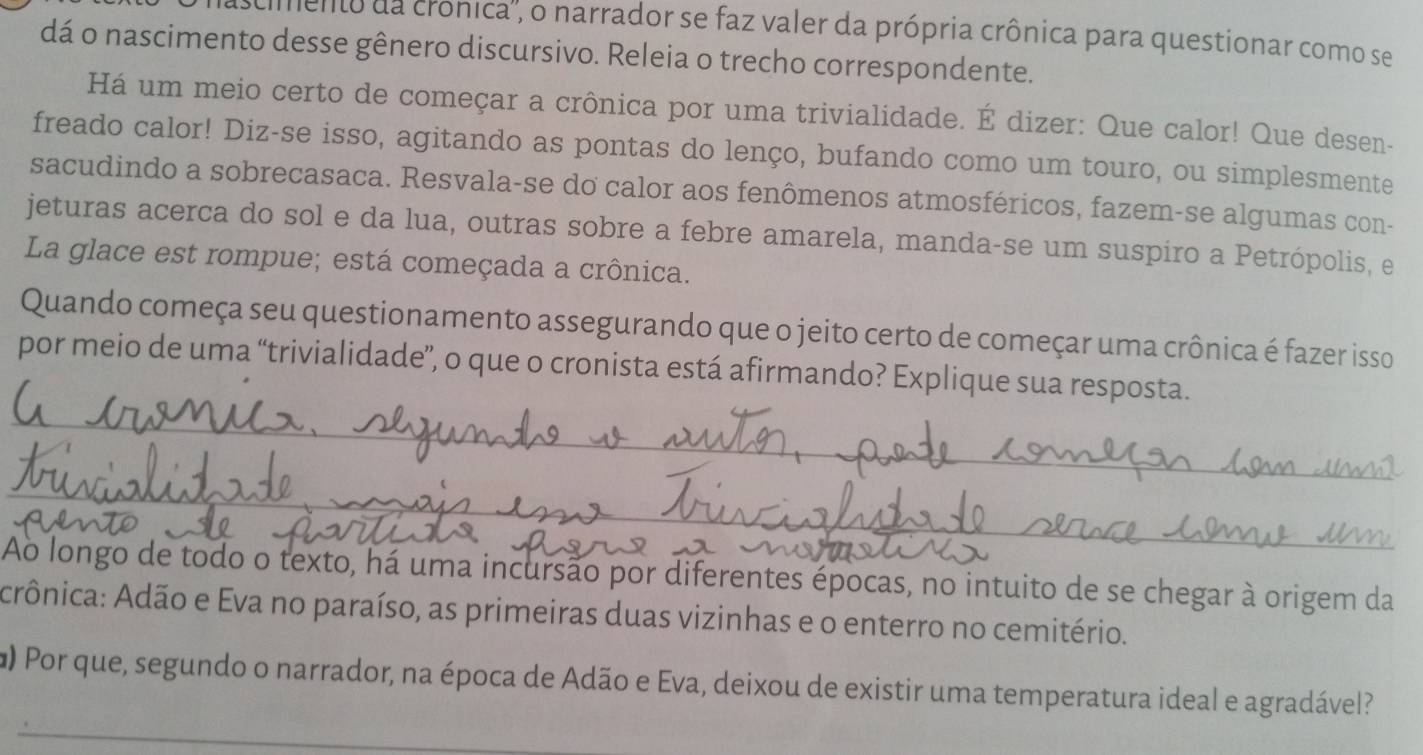 nascimento da crônica", o narrador se faz valer da própria crônica para questionar como se
dá o nascimento desse gênero discursivo. Releia o trecho correspondente.
Há um meio certo de começar a crônica por uma trivialidade. É dizer: Que calor! Que desen-
freado calor! Diz-se isso, agitando as pontas do lenço, bufando como um touro, ou simplesmente
sacudindo a sobrecasaca. Resvala-se do calor aos fenômenos atmosféricos, fazem-se algumas con-
jeturas acerca do sol e da lua, outras sobre a febre amarela, manda-se um suspiro a Petrópolis, e
La glace est rompue; está começada a crônica.
Quando começa seu questionamento assegurando que o jeito certo de começar uma crônica é fazer isso
por meio de uma "trivialidade", o que o cronista está afirmando? Explique sua resposta.
A cronica, segundo o autor, pode começar com uma
trivialidade, mais essa trivialidade serve como um
ponto de partida para a narrativa
Ao longo de todo o texto, há uma incursão por diferentes épocas, no intuito de se chegar à origem da
crônica: Adão e Eva no paraíso, as primeiras duas vizinhas e o enterro no cemitério.
a) Por que, segundo o narrador, na época de Adão e Eva, deixou de existir uma temperatura ideal e agradável?